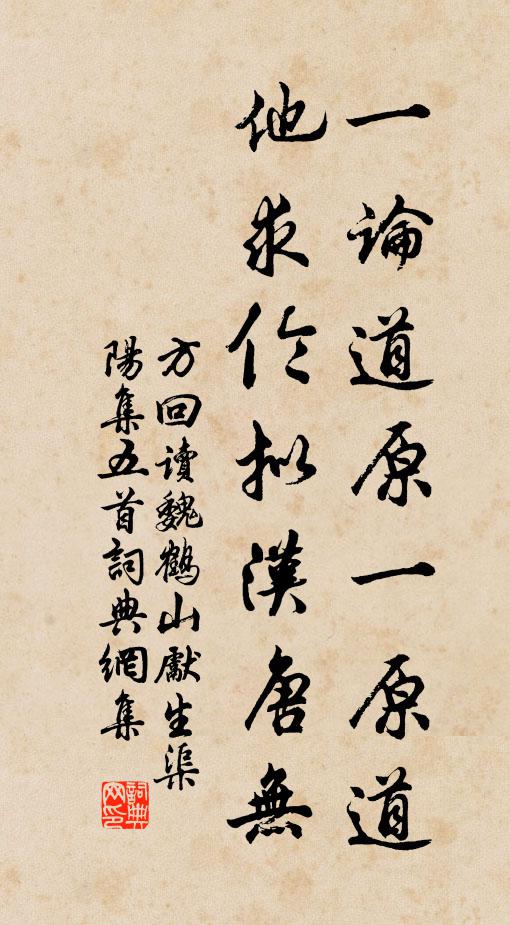 一論道原一原道
他求伦拟漢唐無
方回讀魏鶴山獻生渠
陽集五首詞典網集
詞典
网印